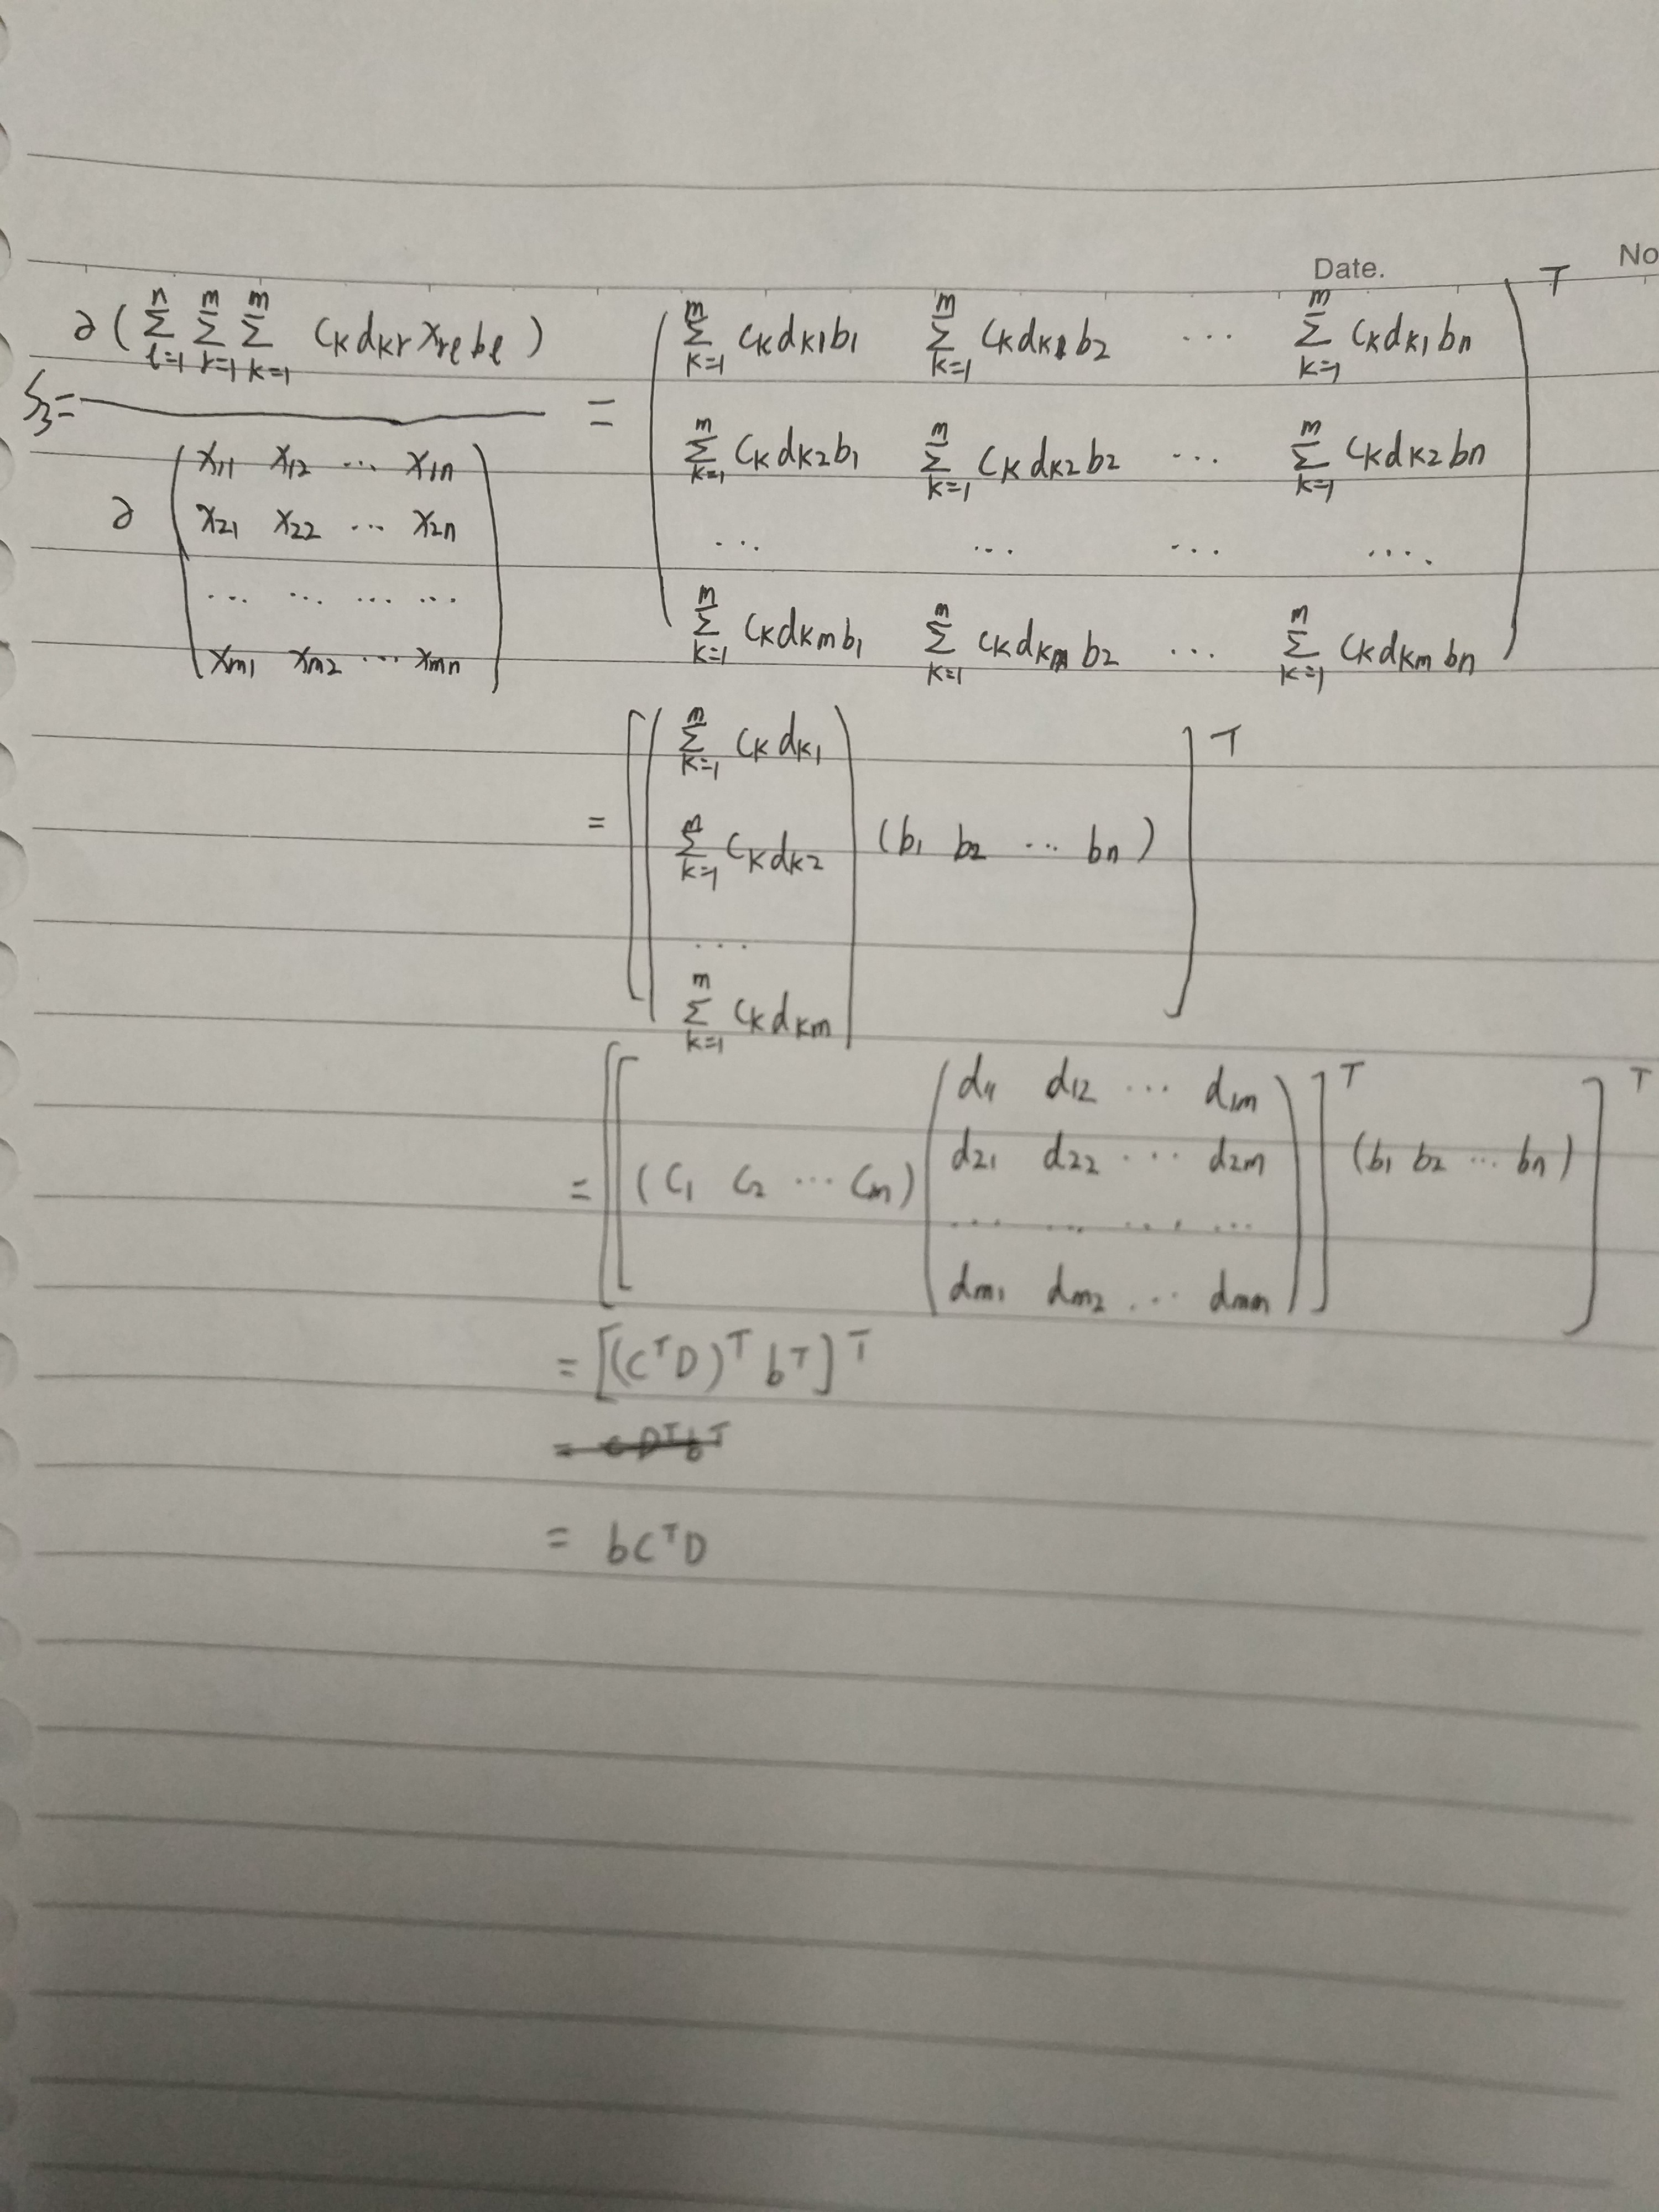 Date. No
∂(∑_{l=1}^{n} ∑_{r=1}^{m} ∑_{k=1}^{m} c_k d_{kr} x_{rl} b_l)
S_3 = ──────── =
∂ ( x_{11} x_{12} ... x_{1n}
x_{21} x_{22} ... x_{2n}
... ... ... ...
x_{m1} x_{m2} ... x_{mn} )
( ∑_{k=1}^{m} c_k d_{k1} b_1 ∑_{k=1}^{m} c_k d_{k1} b_2 ... ∑_{k=1}^{m} c_k d_{k1} b_n
∑_{k=1}^{m} c_k d_{k2} b_1 ∑_{k=1}^{m} c_k d_{k2} b_2 ... ∑_{k=1}^{m} c_k d_{k2} b_n
... ... ... ....
∑_{k=1}^{m} c_k d_{km} b_1 ∑_{k=1}^{m} c_k d_{km} b_2 ... ∑_{k=1}^{m} c_k d_{km} b_n )^T
= [ ( ∑_{k=1}^{m} c_k d_{k1}
∑_{k=1}^{m} c_k d_{k2}
...
∑_{k=1}^{m} c_k d_{km} ) (b_1 b_2 ... b_n) ]^T
= [ [ (c_1 c_2 ... c_m) ( d_{11} d_{12} ... d_{1m}
d_{21} d_{22} ... d_{2m}
... ... ... ...
d_{m1} d_{m2} ... d_{mm} ) ]^T (b_1 b_2 ... b_n) ]^T
= [(C^T D)^T b^T]^T
= b C^T D